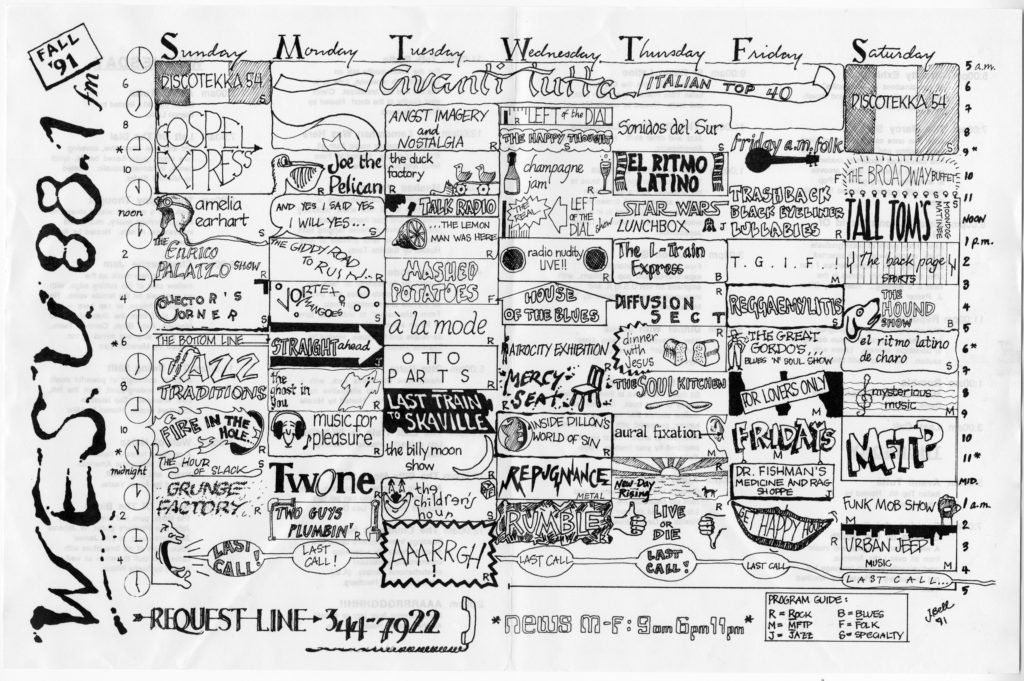 FALL
'91
WESU 88.1 fm
Sunday
Monday
Tuesday
Wednesday
Thursday
Friday
Saturday
6
8
*
10
noon
2
4
* 6
8
10
midnight
2
4
5 a.m.
6
7
8
9*
10
11
NOON
1 p.m.
2
3
4
5
6*
7
8
9
10
11*
MID.
1 a.m.
2
3
4
5
Avanti Tutta
ITALIAN TOP 40
DISCOTEKKA 54
S
GOSPEL
EXPRESS
S
amelia
earhart
S
THE
ENRICO
PALAZZO SHOW
R
COLLECTOR'S
CORNER
S
THE BOTTOM LINE
JAZZ
TRADITIONS
FIRE IN THE
HOLE
THE HOUR
OF SLACK
S
GRUNGE
FACTORY
R
LAST
CALL!
Joe the
Pelican
R
AND YES I SAID YES
I WILL YES...
THE GIDDY ROAD
TO RUSH...
R
VORTEX
R
STRAIGHT ahead
J
the
ghost in
you
R
music for
pleasure
R
TWONE
R
TWO GUYS
PLUMBIN'
LAST
CALL!
ANGST IMAGERY
and
NOSTALGIA
R
the duck
factory
R
TALK RADIO
S
...THE LEMON
MAN WAS HERE
R
MASHED
POTATOES
F
à la mode
R
OTTO
PARTS
R
LAST TRAIN
TO SKAVILLE
R
the billy moon
show
R
the
children's
hour
S
AAARRGH
!
R
LEFT of the DIAL
THE HAPPY THOUGHT
S
champagne
jam
R
THE REAL
LEFT
OF THE
DIAL show
R
radio nudity
LIVE!!
R
HOUSE
OF THE BLUES
B
ATROCITY EXHIBITION
R
MERCY
SEAT
R
INSIDE DILLON'S
WORLD OF SIN
R
REPUGNANCE
METAL
RUMBLE
R
LAST CALL
Sonidos del Sur
S
EL RITMO
LATINO
S
STAR WARS
LUNCHBOX
J
The L-Train
Express
B
DIFFUSION
SECT
R
dinner
with
Jesus
R
THE SOUL KITCHEN
aural fixation
R
New Day
Rising
R
LIVE
OR
DIE
R
LAST
CALL!
friday a.m. folk
F
TRASHBACK
BLACK EYELINER
LULLABIES
R
T. G. I. F. !
R
REGGAEMYLITIS
S
THE GREAT
GORDO'S...
BLUES 'N' SOUL SHOW
FOR LOVERS ONLY
M
FRIDAYS
M
DR. FISHMAN'S
MEDICINE AND RAG
SHOPPE
J
GET HAPPY TIME
R
LAST CALL
DISCOTEKKA 54
S
F
THE BROADWAY BUFFET
S
TALL TOM'S
MOONDOG
MATINEE
The back page
SPORTS
THE
HOUND
SHOW
B
el ritmo latino
de charo
S
mysterious
music
M
MFTP
M
FUNK MOB SHOW
M
URBAN JEEP
MUSIC
M
LAST CALL...
REQUEST LINE → 344-7922
*news M-F: 9am 6pm 11pm*
PROGRAM GUIDE:
R = ROCK B = BLUES
M = MFTP F = FOLK
J = JAZZ S = SPECIALTY
J Bell
91